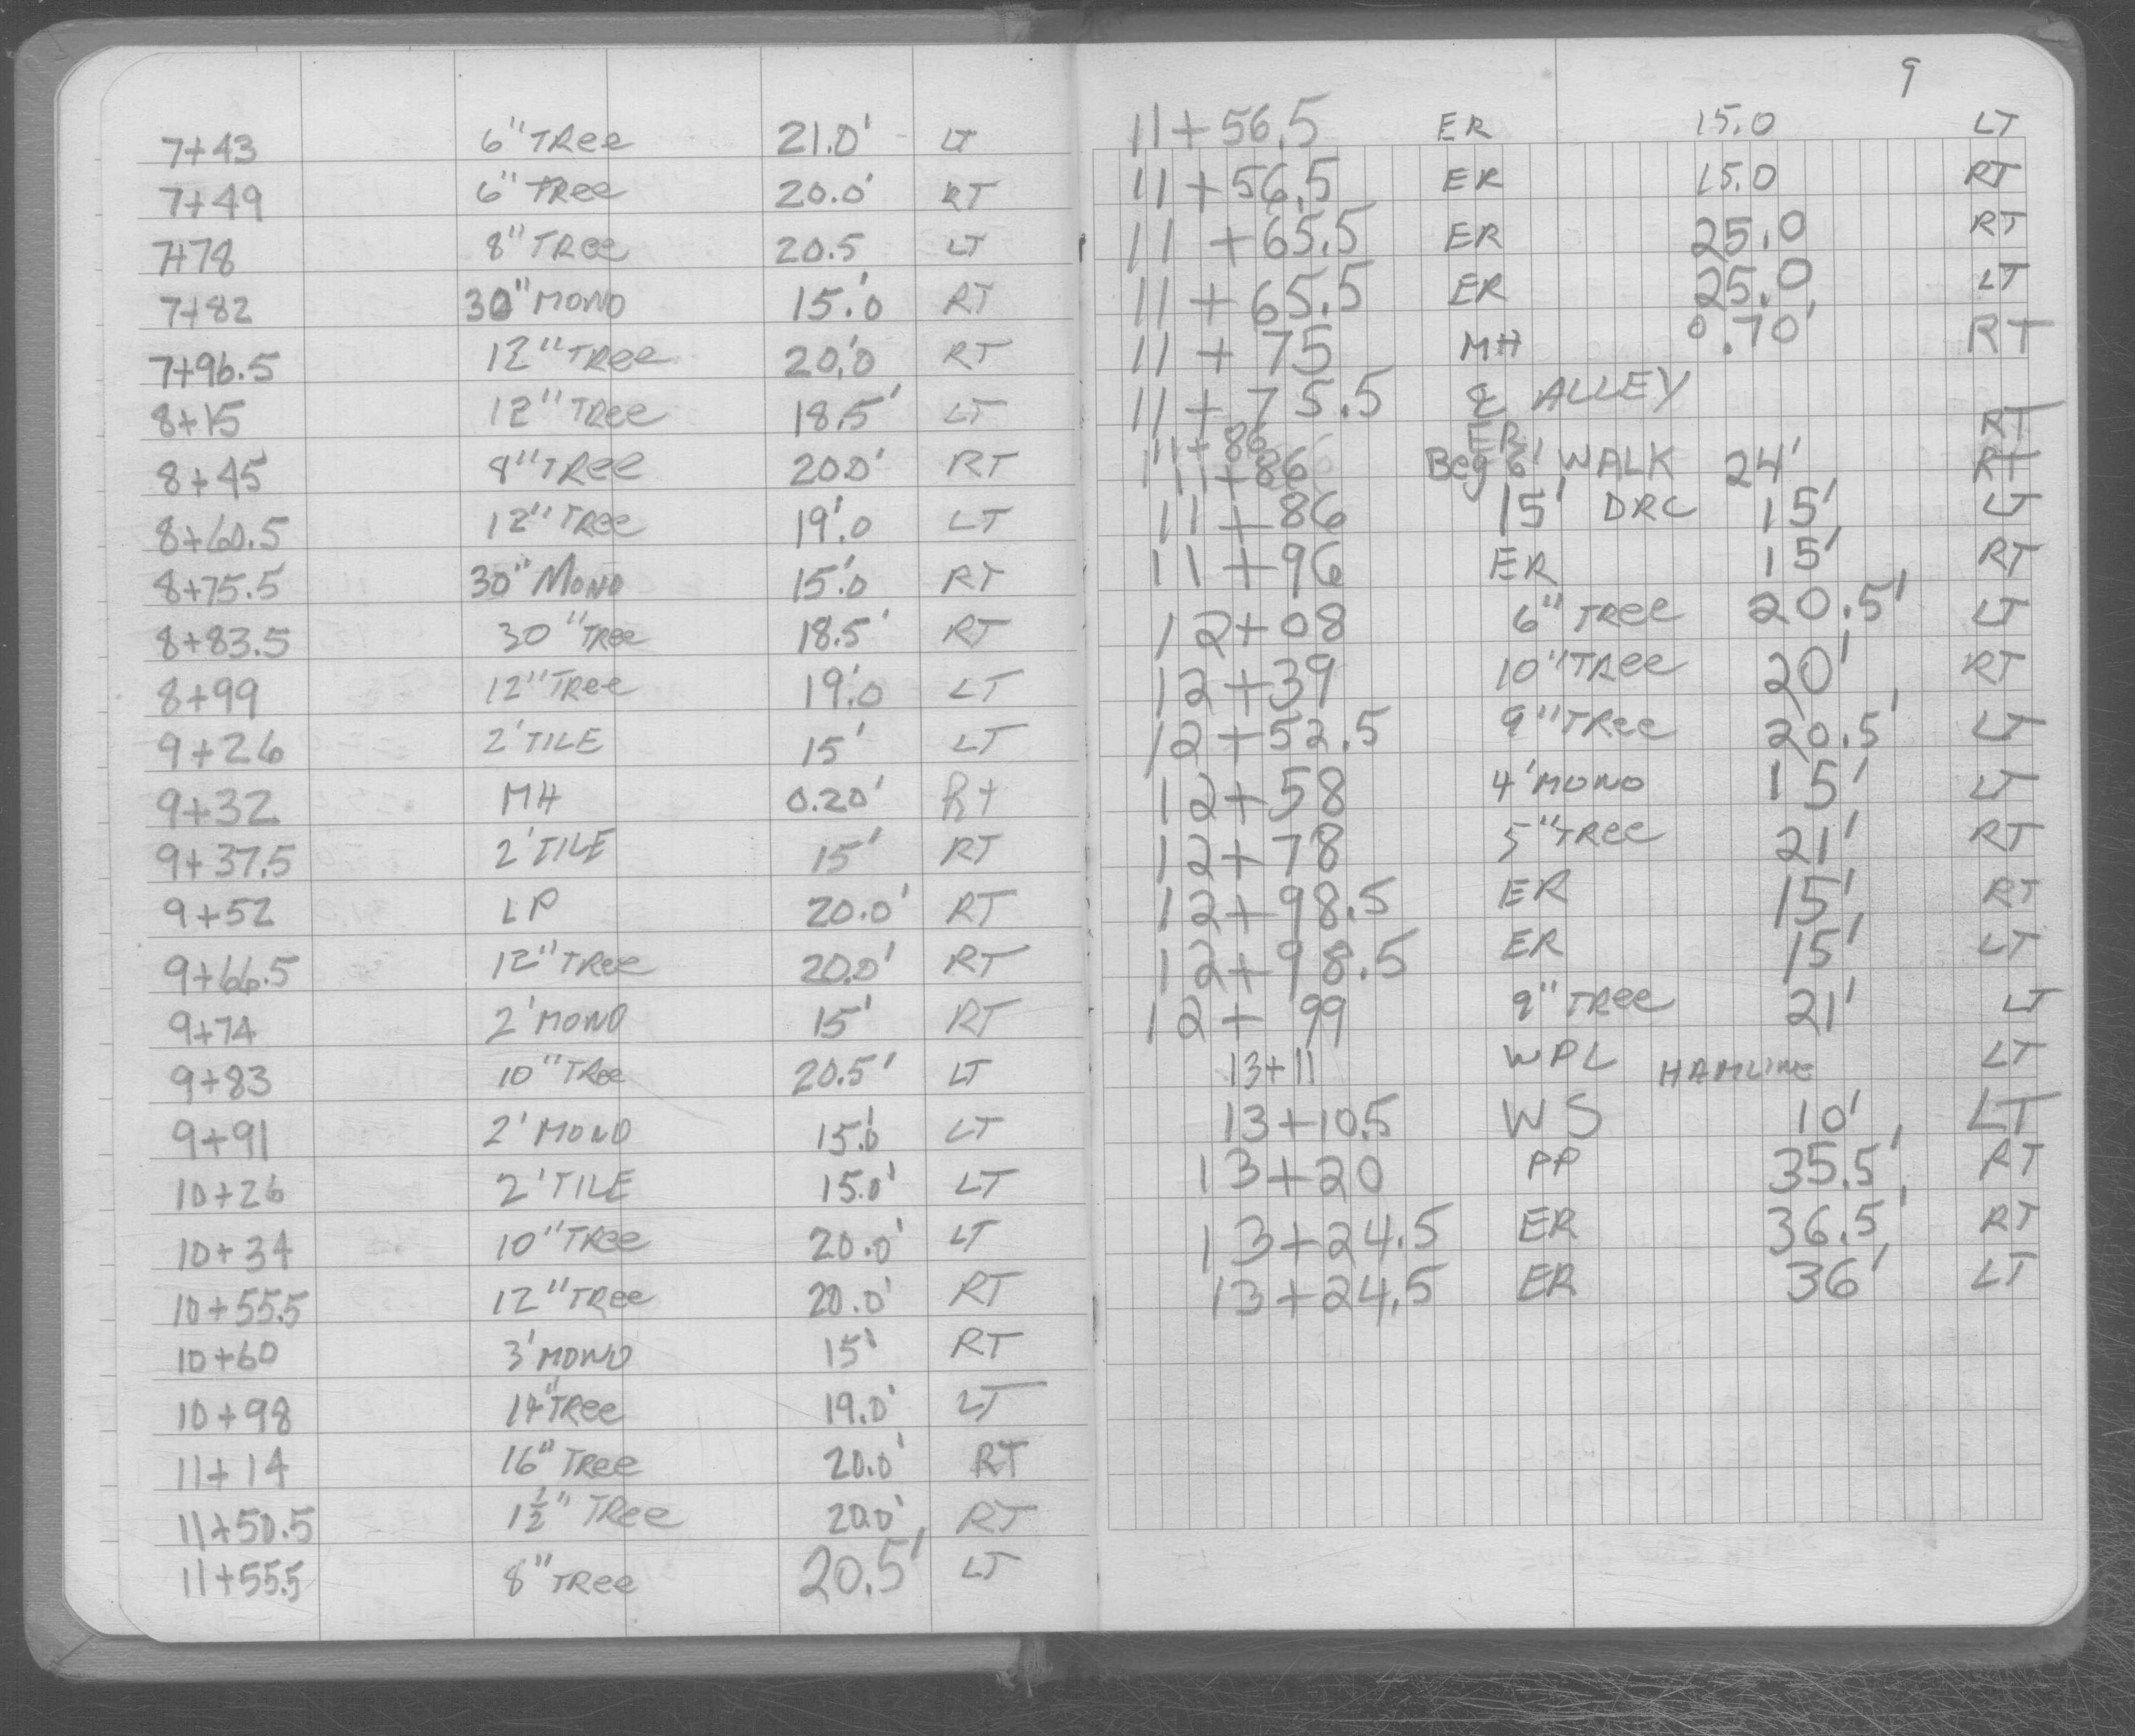 7+43 6" TRee 21.0' LT
7+49 6" TRee 20.0' RT
7+78 8" TRee 20.5 LT
7+82 30" MONO 15.'0 RT
7+96.5 12" TRee 20.'0 RT
8+15 12" TRee 18.5' LT
8+45 8" TRee 20.0' RT
8+60.5 12" TRee 19.'0 LT
8+75.5 30" MONO 15.'0 RT
8+83.5 30" TRee 18.5' RT
8+99 12" TRee 19.'0 LT
9+26 2' TILE 15' LT
9+32 MH 0.20' Rt
9+37.5 2' TILE 15' RT
9+52 LP 20.0' RT
9+66.5 12" TRee 20.0' RT
9+74 2' MONO 15' RT
9+83 10" TRee 20.5' LT
9+91 2' MONO 15.'0 LT
10+26 2' TILE 15.0' LT
10+34 10" TRee 20.0' LT
10+55.5 12" TRee 20.0' RT
10+60 3' MONO 15' RT
10+98 14" TRee 19.0' LT
11+14 16" TRee 20.0' RT
11+50.5 1½" TRee 20.0' RT
11+55.5 8" TRee 20.5' LT
9
11+56.5 ER 15.0 LT
11+56.5 ER 15.0 RT
11+65.5 ER 25.0 RT
11+65.5 ER 25.0 LT
11+75 MH 0.70' RT
11+75.5 ℄ ALLEY
11+86 ER RT
11+86 Beg 6' WALK 24' Rt
11+86 15' DRC 15' LT
11+96 ER 15' RT
12+08 6" TRee 20.5' LT
12+39 10" TRee 20' RT
12+52.5 9" TRee 20.5' LT
12+58 4' MONO 15' LT
12+78 5" TRee 21' RT
12+98.5 ER 15' RT
12+98.5 ER 15' LT
12+99 9" TRee 21' LT
13+11 WPL HAMLINE LT
13+10.5 WS 10' LT
13+20 PP 35.5' RT
13+24.5 ER 36.5' RT
13+24.5 ER 36' LT